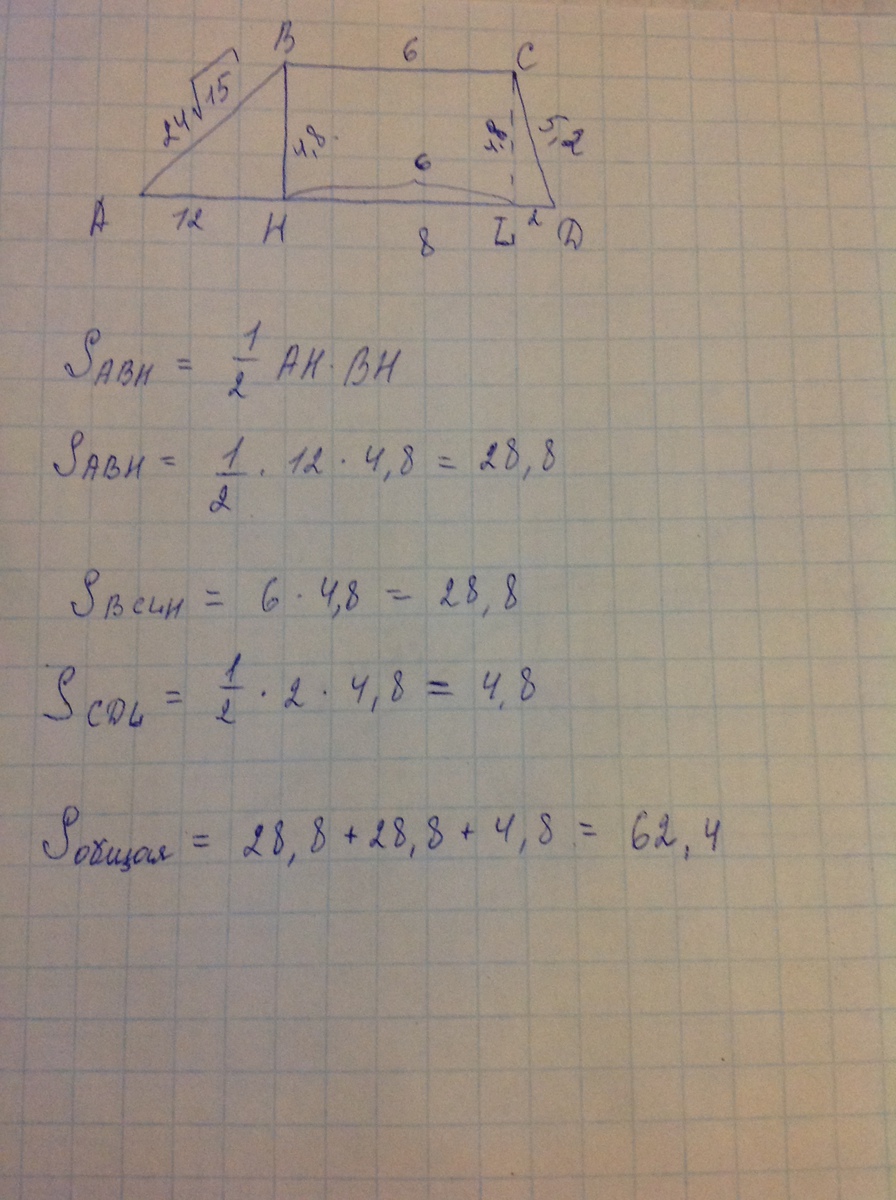 B 6 C
24√15 4,8 4,8 5,2
6
A 12 H 8 L 2 D
S_ABH = 1/2 AH · BH
S_ABH = 1/2 · 12 · 4,8 = 28,8
S_BCLH = 6 · 4,8 = 28,8
S_CDL = 1/2 · 2 · 4,8 = 4,8
S_общая = 28,8 + 28,8 + 4,8 = 62,4